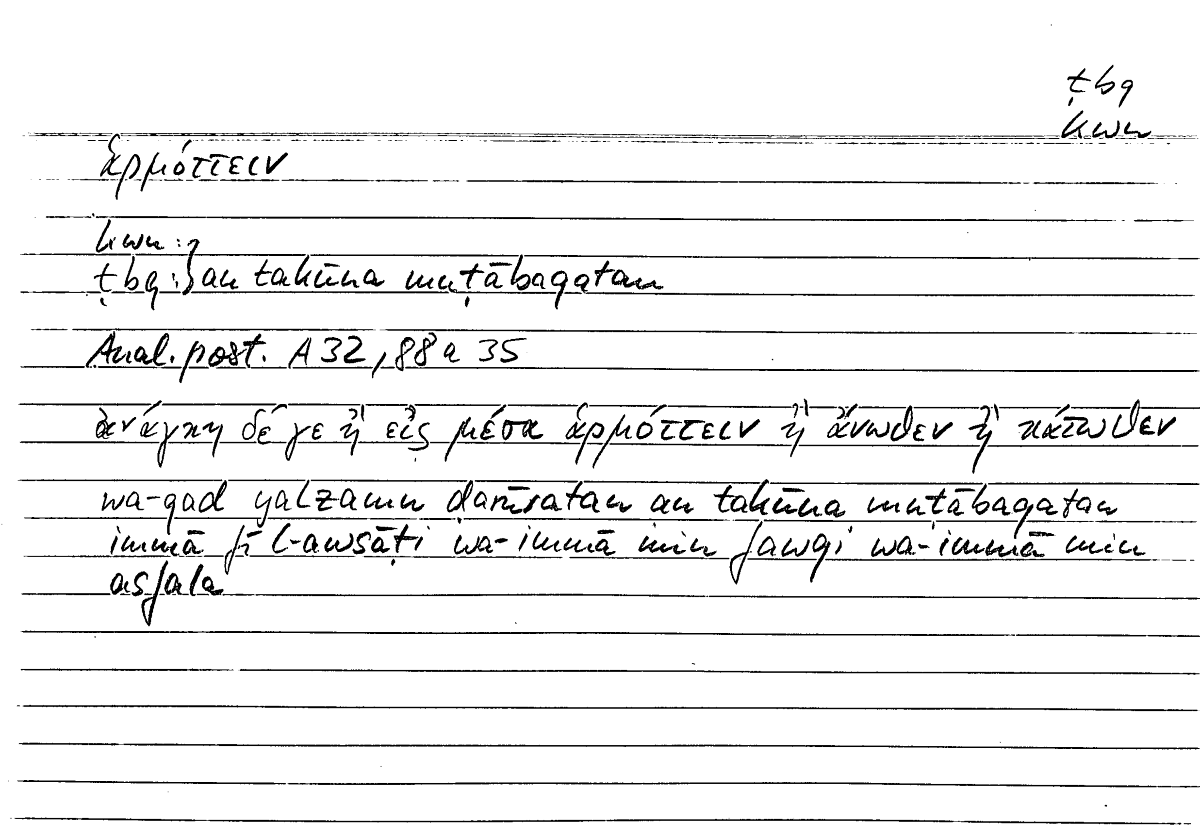 ṭbq
kwn
ἁρμόττειν
kwn:}
ṭbq:} an takūna muṭābaqatan
Anal. post. A 32, 88 a 35
ἀνάγκη δέ γε ἢ εἰς μέσα ἁρμόττειν ἢ ἄνωθεν ἢ κάτωθεν
wa-qad yalzamu ḍarūratan an takūna muṭābaqatan
immā fī l-awsāṭi wa-immā min fawqi wa-immā min
asfala